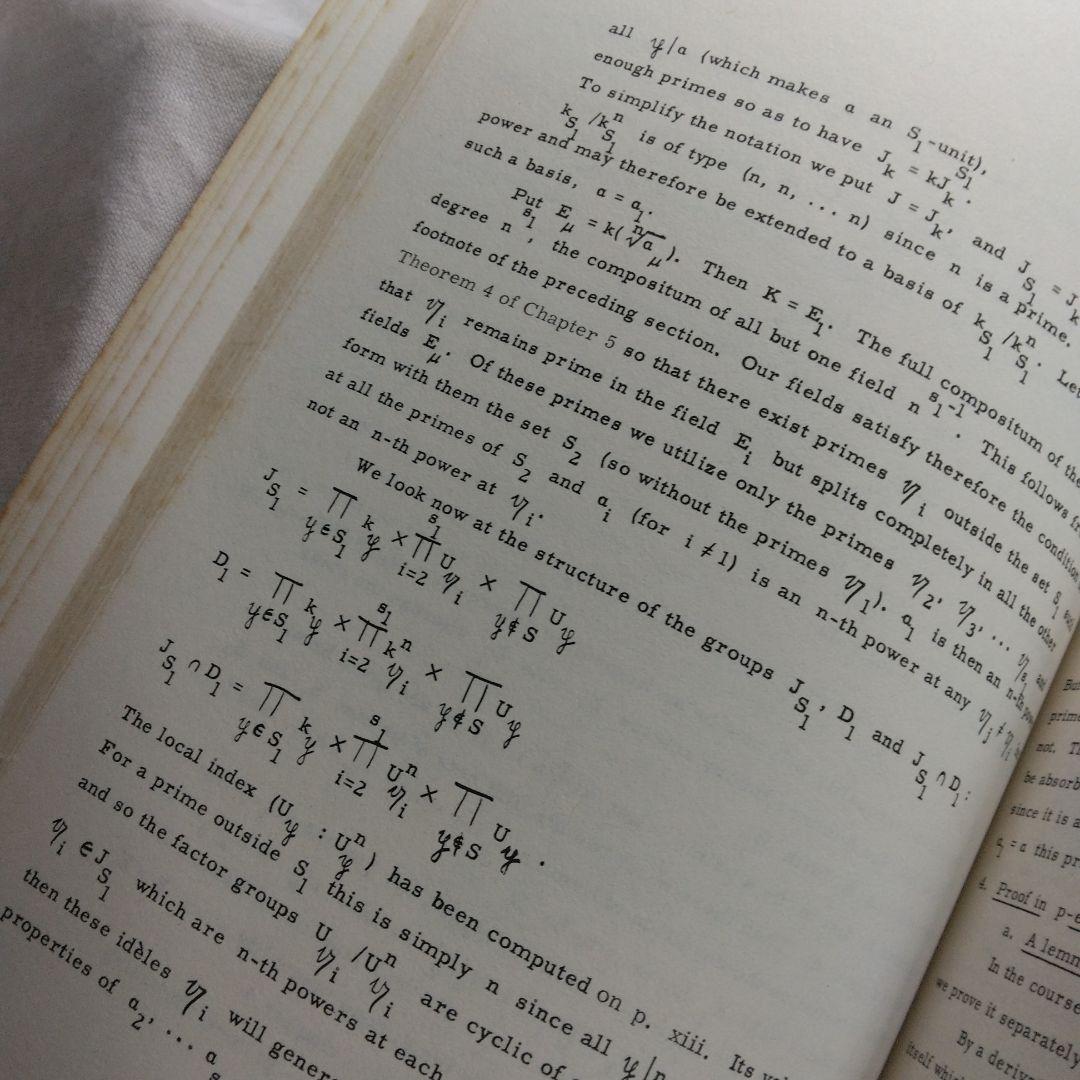 all 𝓎/α (which makes α an S₁-unit),
enough primes so as to have J_k = kJ_{S₁}.
To simplify the notation we put J = J_k, and J_{S₁} = J_k
k_{S₁}/k^n_{S₁} is of type (n, n, ... n) since n is a prime.
power and may therefore be extended to a basis of k_{S₁}/k^n_{S₁}. Let
such a basis, α = α₁.
Put E_μ = k(ⁿ√α_μ). Then K = E₁. The full compositum of the
degree n^{s₁}, the compositum of all but one field n^{s₁-1}. This follows
footnote of the preceding section. Our fields satisfy therefore the condition
Theorem 4 of Chapter 5 so that there exist primes 𝓋_i outside the set S₁
that 𝓋_i remains prime in the field E_i but splits completely in all the other
fields E_μ. Of these primes we utilize only the primes 𝓋₂, 𝓋₃, ... 𝓋_{s₁} and
form with them the set S₂ (so without the primes 𝓋₁). α₁ is then an n-th
at all the primes of S₂ and α_i (for i ≠ 1) is an n-th power at any 𝓋_j ≠ 𝓋_i
not an n-th power at 𝓋_i.
We look now at the structure of the groups J_{S₁}, D₁ and J_{S₁} ∩ D₁:
J_{S₁} = ∏_{𝓎∈S₁} k_𝓎 × ∏_{i=2}^{s₁} U_{𝓋_i} × ∏_{𝓎∉S} U_𝓎
D₁ = ∏_{𝓎∈S₁} k_𝓎 × ∏_{i=2}^{s₁} k^n_{𝓋_i} × ∏_{𝓎∉S} U_𝓎
J_{S₁} ∩ D₁ = ∏_{𝓎∈S₁} k_𝓎 × ∏_{i=2}^{s₁} U^n_{𝓋_i} × ∏_{𝓎∉S} U_𝓎.
The local index (U_𝓎 : U^n_𝓎) has been computed on p. xiii. Its
For a prime outside S₁ this is simply n since all 𝓎/n
and so the factor groups U_{𝓋_i}/U^n_{𝓋_i} are cyclic of
𝓋_i ∈ J_{S₁} which are n-th powers at each
then these idèles 𝓋_i will
properties of α₂, ... α
But
not.
be absorb
since it is a
α₁ = α this
4. Proof in
a. A
In the course
we prove it separately
By a
itself